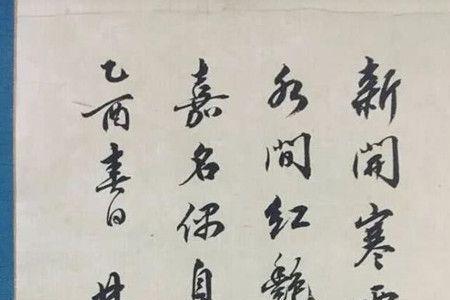 新開寒
水間紅
嘉名偶自
乙酉春日